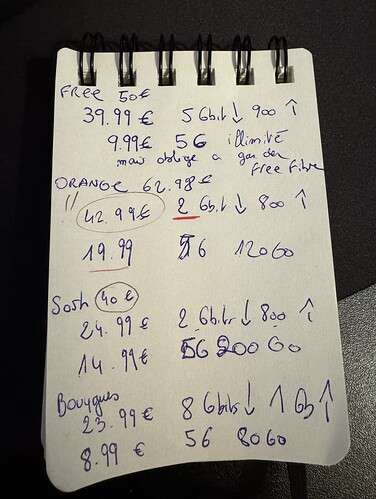 FREE 50€
39.99 € 5 Gbit ↓ 900 ↑
9.99€ 5G illimité
mais oblige a garder
Free Fibre
ORANGE 62.98€
!! 42.99€ 2 Gbit ↓ 800 ↑
19.99 5G 120Go
Sosh 40€
24.99 € 2 Gbit ↓ 800 ↑
14.99€ 5G 200Go
Bouygues
23.99 € 8 Gbits ↓ 1 Gb ↑
8.99 € 5G 80Go